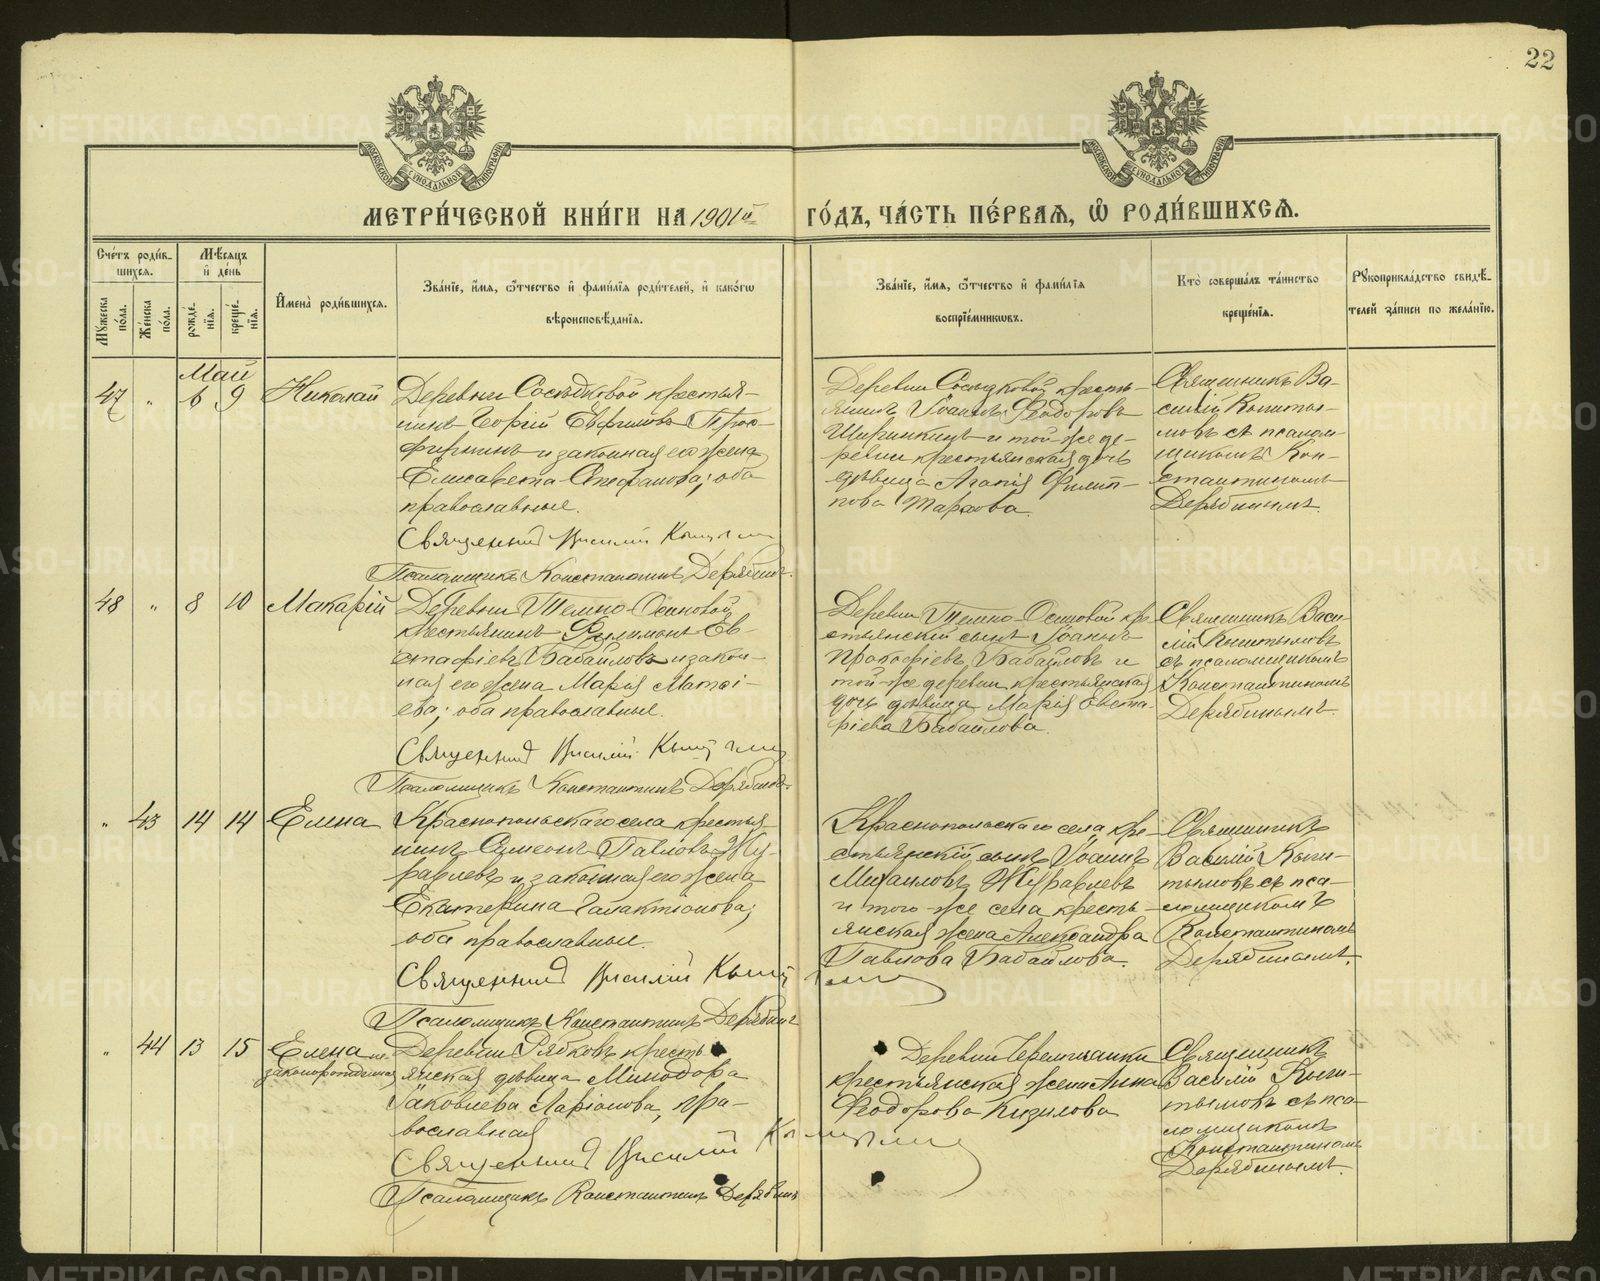 22
МОСКОВСКОЙ СѴНОДАЛЬНОЙ ТИПОГРАФІИ
МОСКОВСКОЙ СѴНОДАЛЬНОЙ ТИПОГРАФІИ
МЕТРИ́ЧЕСКОЙ КНИ́ГИ НА 1901й ГО́ДЪ, ЧА́СТЬ ПЕ́РВАѦ, Ѡ҆ РОДИ́ВШИХСѦ.
Сче́тъ роди́в-
шихся.
Мѣ́сяцъ
и҆ де́нь
Мꙋ́жеска
по́ла.
Же́нска
по́ла.
рожде́-
нїя.
креще́-
нїя.
И҆мена̀ роди́вшихся.
Зва́нїе, и҆́мя, ѻ҆́тчество и҆ фами́лїя роди́телей, и҆ како́гѡ
вѣроисповѣ́данїя.
Зва́нїе, и҆́мя, ѻ҆́тчество и҆ фами́лїя
воспрїе́мникѡвъ.
Кто̀ соверша́лъ та́инство
креще́нїя.
Рꙋкоприкла́дство свидѣ́-
телей за́писи по жела́нїю.
Май
47 " 6 9 Николай
Деревни Сосѣдковой крестья-
нинъ Георгій Евфимовъ
и законная его жена
Елисавета Стефанова; оба
православные.
Священникъ Василій Кыштымовъ
Псаломщикъ Константинъ Дерябинъ.
Деревни Сосѣдковой кресть-
янинъ Іоаннъ Ѳеодоровъ
Ширинкинъ и той-же де-
ревни крестьянская дочь
дѣвица Агапія Филип-
пова
Священникъ Ва-
силій Кышты-
мовъ съ псалом-
щикомъ Кон-
стантиномъ
Дерябинымъ.
48 " 8 10 Макарій
Деревни Темно-Осиновой
крестьянинъ Филимонъ Ев-
стафіевъ Бабайловъ и закон-
ная его жена Марія Матѳі-
ева; оба православные.
Священникъ Василій Кыштымовъ
Псаломщикъ Константинъ Дерябинъ.
Деревни Темно-Осиновой кре-
стьянскій сынъ Іоаннъ
Прокофіевъ Бабайловъ и
той-же деревни крестьянская
дочь дѣвица Марія Евста-
фіева Бабайлова.
Священникъ Васи-
лій Кыштымовъ
съ псаломщикомъ
Константиномъ
Дерябинымъ.
" 43 14 14 Елена
Краснопольскаго села крестья-
нинъ Симеонъ Павловъ Жу-
равлевъ и законная его жена
Екатерина Галактіонова;
оба православные.
Священникъ Василій Кыштымовъ
Псаломщикъ Константинъ Дерябинъ
Краснопольскаго села кре-
стьянскій сынъ Іоаннъ
Михаиловъ Журавлевъ
и того-же села кресть-
янская жена Александра
Павлова Бабайлова.
Священникъ
Василій Кыш-
тымовъ съ пса-
ломщикомъ
Константиномъ
Дерябинымъ.
" 44 13 15 Елена не-
законорожденная
Деревни Рябковъ кресть-
янская дѣвица Минодора
Іаковлева Ларіонова, пра-
вославная
Священникъ Василій Кыштымовъ
Псаломщикъ Константинъ Дерябинъ
Деревни Черемшанки
крестьянская жена Анна
Ѳеодорова Кизилова
Священникъ
Василій Кыш-
тымовъ съ пса-
ломщикомъ
Константиномъ
Дерябинымъ.
METRIKI.GASO-URAL.RU